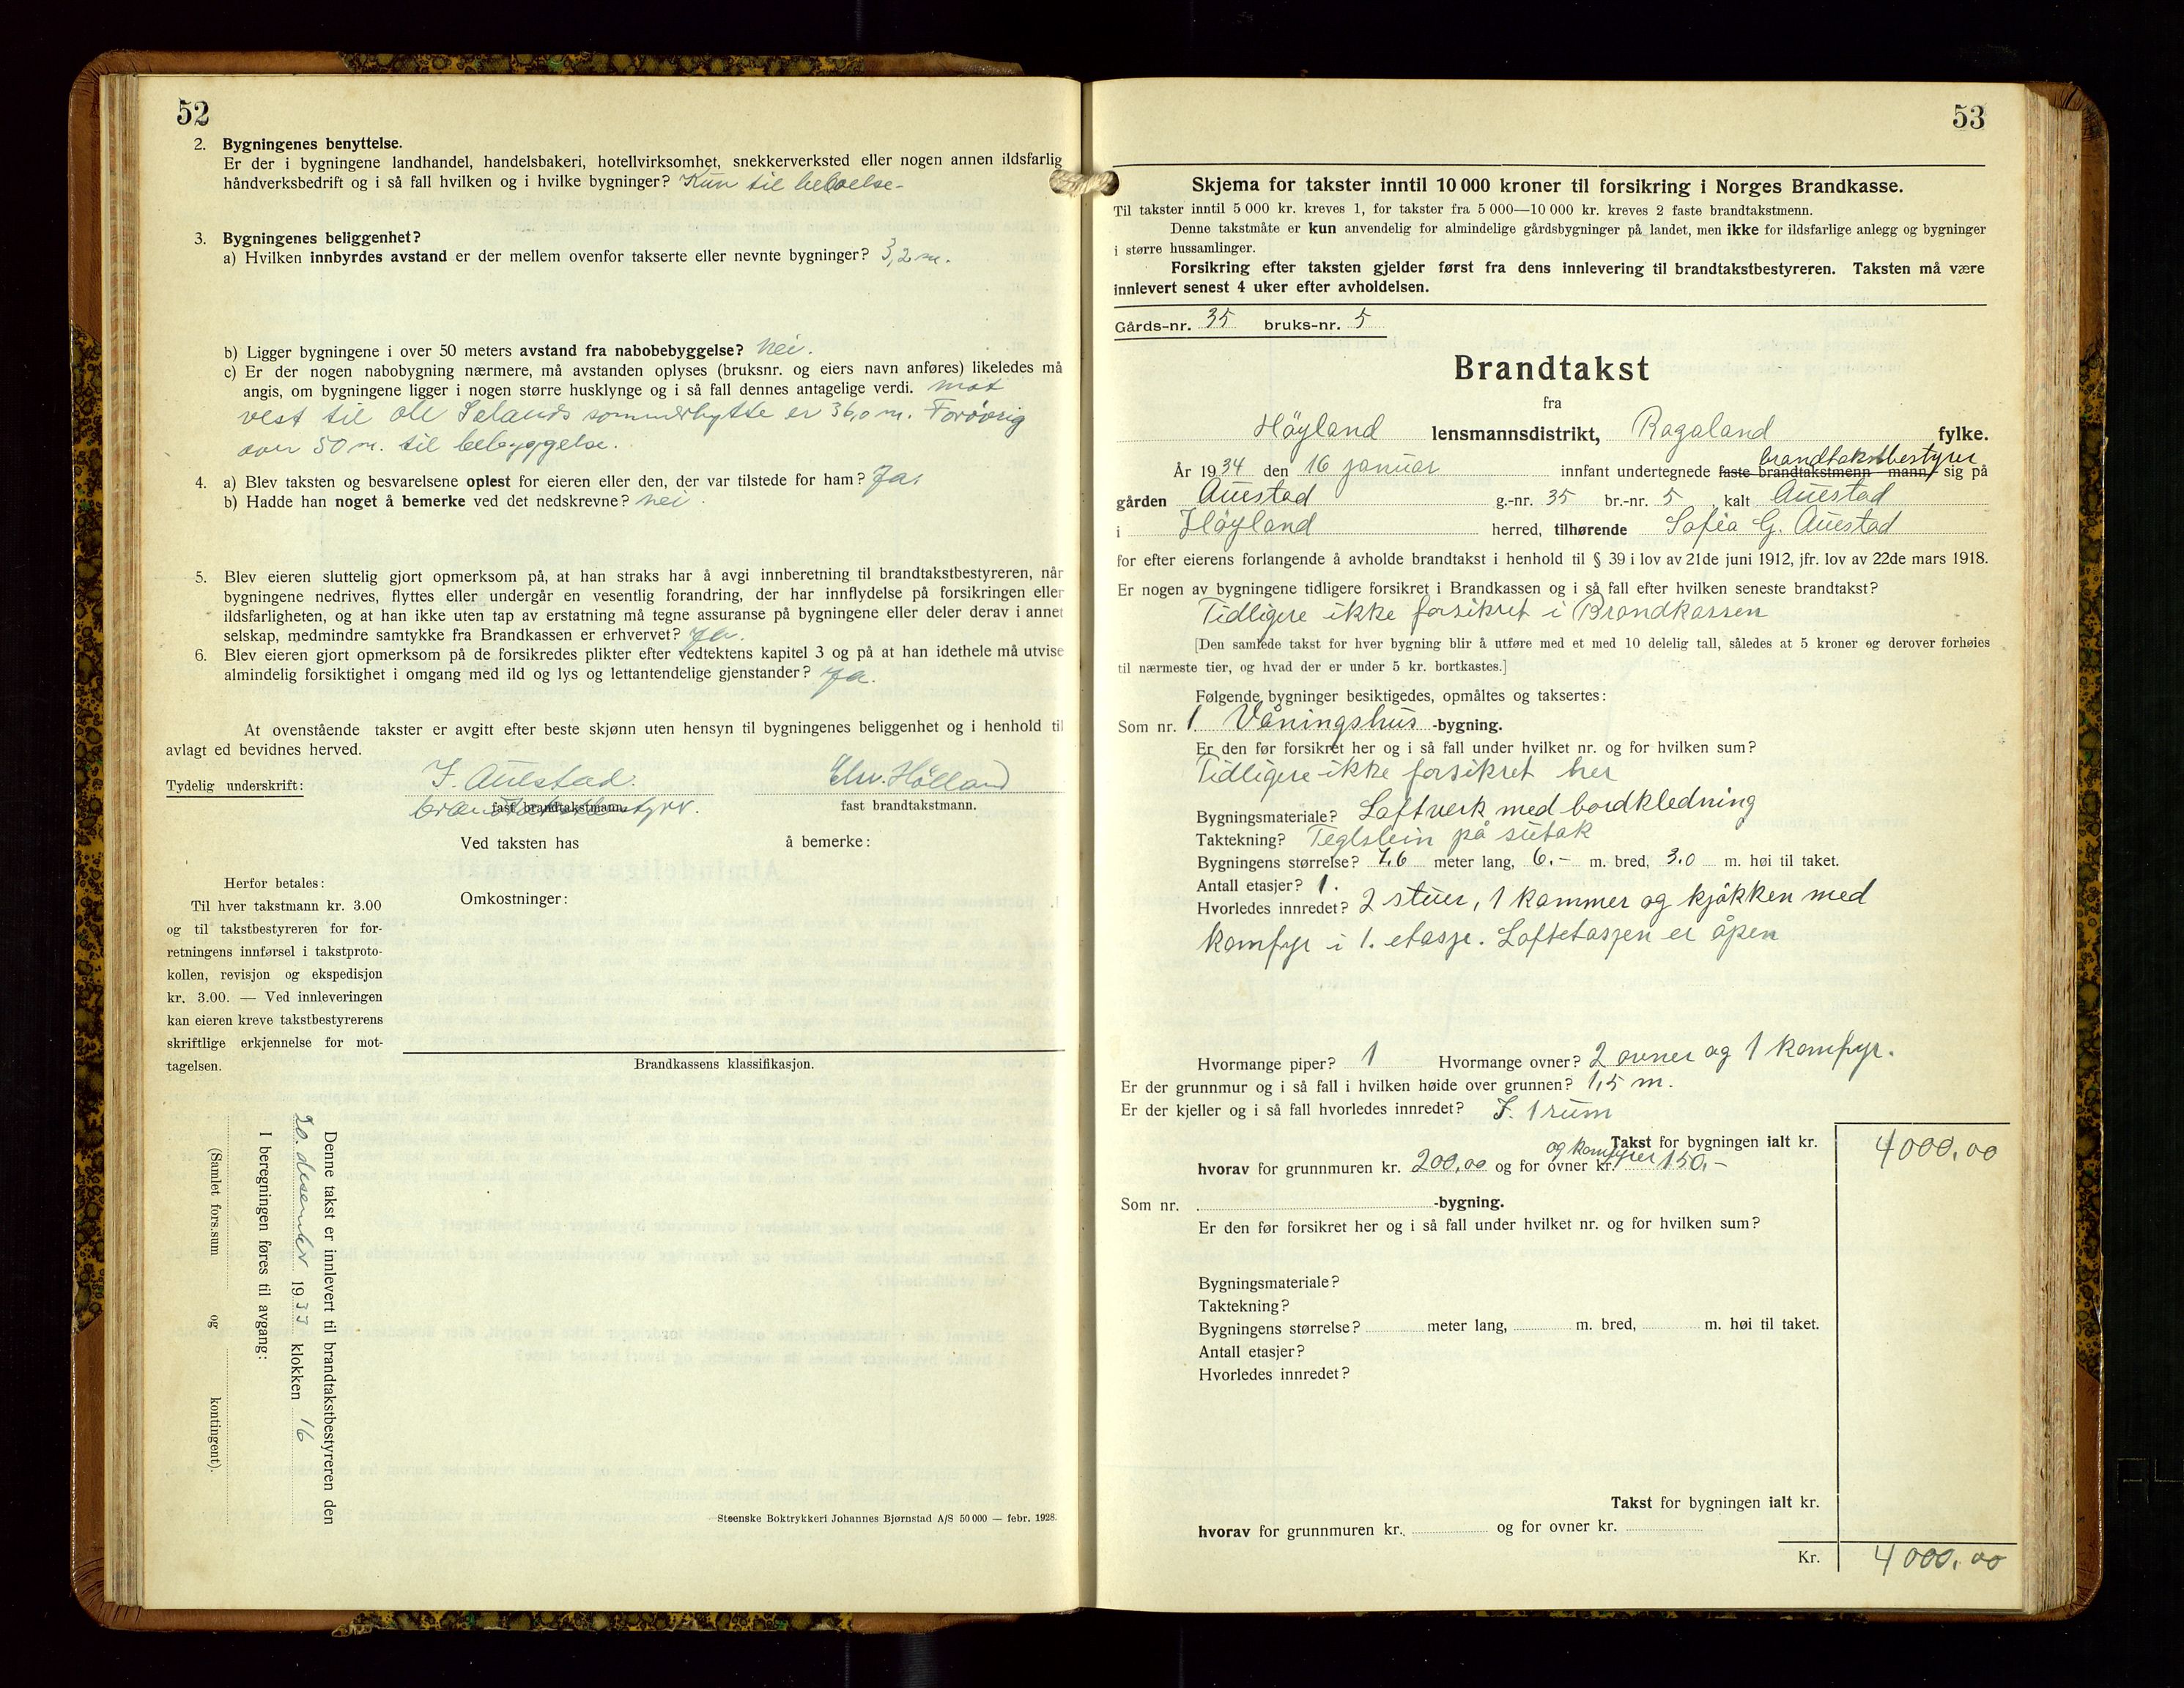 52
2. Bygningenes benyttelse.
Er der i bygningene landhandel, handelsbakeri, hotellvirksomhet, snekkerverksted eller nogen annen ildsfarlig
håndverksbedrift og i så fall hvilken og i hvilke bygninger? Kun til beboelse-
3. Bygningenes beliggenhet?
a) Hvilken innbyrdes avstand er der mellem ovenfor takserte eller nevnte bygninger? 3,2 m.
b) Ligger bygningene i over 50 meters avstand fra nabobebyggelse? nei.
c) Er der nogen nabobygning nærmere, må avstanden oplyses (bruksnr. og eiers navn anføres) likeledes må
angis, om bygningene ligger i nogen større husklynge og i så fall dennes antagelige verdi. mot
vest til Ole Selands sommerhytte er 36,0 m. Forøvrig
over 50 m. til bebyggelse.
4. a) Blev taksten og besvarelsene oplest for eieren eller den, der var tilstede for ham? Ja.
b) Hadde han noget å bemerke ved det nedskrevne? nei.
5. Blev eieren sluttelig gjort opmerksom på, at han straks har å avgi innberetning til brandtakstbestyreren, når
bygningene nedrives, flyttes eller undergår en vesentlig forandring, der har innflydelse på forsikringen eller
ildsfarligheten, og at han ikke uten tap av erstatning må tegne assuranse på bygningene eller deler derav i annet
selskap, medmindre samtykke fra Brandkassen er erhvervet? Ja.
6. Blev eieren gjort opmerksom på de forsikredes plikter efter vedtektens kapitel 3 og på at han idethele må utvise
almindelig forsiktighet i omgang med ild og lys og lettantendelige gjenstander? Ja.
At ovenstående takster er avgitt efter beste skjønn uten hensyn til bygningenes beliggenhet og i henhold til
avlagt ed bevidnes herved.
Tydelig underskrift: J. Auestad. Chr. Hölland
fast brandtakstmann. fast brandtakstmann.
Ved taksten has å bemerke:
Herfor betales:
Til hver takstmann kr. 3.00
og til takstbestyreren for for-
retningens innførsel i takstproto-
kollen, revisjon og ekspedisjon
kr. 3.00. — Ved innleveringen
kan eieren kreve takstbestyrerens
skriftlige erkjennelse for mot-
tagelsen.
Omkostninger:
Brandkassens klassifikasjon.
Denne takst er innlevert til brandtakstbestyreren den
20. desember 1933 klokken 16
I beregningen føres til avgang:
(Samlet fors.sum og kontingent).
Steenske Boktrykkeri Johannes Bjørnstad A/S 50 000 — febr. 1928.
53
Skjema for takster inntil 10 000 kroner til forsikring i Norges Brandkasse.
Til takster inntil 5 000 kr. kreves 1, for takster fra 5 000—10 000 kr. kreves 2 faste brandtakstmenn.
Denne takstmåte er kun anvendelig for almindelige gårdsbygninger på landet, men ikke for ildsfarlige anlegg og bygninger
i større hussamlinger.
Forsikring efter taksten gjelder først fra dens innlevering til brandtakstbestyreren. Taksten må være
innlevert senest 4 uker efter avholdelsen.
Gårds-nr. 35 bruks-nr. 5
Brandtakst
fra
Höyland lensmannsdistrikt, Rogaland fylke.
brandtakstbestyrer
År 1934 den 16 januar innfant undertegnede faste brandtakstmenn mann sig på
gården Auestad g.-nr. 35 br.-nr. 5, kalt Auestad
i Höyland herred, tilhørende Sofia G. Auestad
for efter eierens forlangende å avholde brandtakst i henhold til § 39 i lov av 21de juni 1912, jfr. lov av 22de mars 1918.
Er nogen av bygningene tidligere forsikret i Brandkassen og i så fall efter hvilken seneste brandtakst?
Tidligere ikke forsikret i Brandkassen
[Den samlede takst for hver bygning blir å utføre med et med 10 delelig tall, således at 5 kroner og derover forhøies
til nærmeste tier, og hvad der er under 5 kr. bortkastes.]
Følgende bygninger besiktigedes, opmåltes og taksertes:
Som nr. 1 Våningshus -bygning.
Er den før forsikret her og i så fall under hvilket nr. og for hvilken sum?
Tidligere ikke forsikret her
Bygningsmateriale? Loftverk med bordkledning
Taktekning? Teglstein på sutak
Bygningens størrelse? 7,6 meter lang, 6.- m. bred, 3.0 m. høi til taket.
Antall etasjer? 1.
Hvorledes innredet? 2 stuer, 1 kammer og kjökken med
komfyr i 1. etasje. Loftetasjen er åpen
Hvormange piper? 1 Hvormange ovner? 2 ovner og 1 komfyr.
Er der grunnmur og i så fall i hvilken høide over grunnen? 1,5 m.
Er der kjeller og i så fall hvorledes innredet? I. 1 rum
Takst for bygningen ialt kr. 4000,00
og komfyrer
hvorav for grunnmuren kr. 200,00 og for ovner kr. 150,-
Som nr. -bygning.
Er den før forsikret her og i så fall under hvilket nr. og for hvilken sum?
Bygningsmateriale?
Taktekning?
Bygningens størrelse? meter lang, m. bred, m. høi til taket.
Antall etasjer?
Hvorledes innredet?
Takst for bygningen ialt kr.
hvorav for grunnmuren kr. og for ovner kr.
Kr. 4000,00